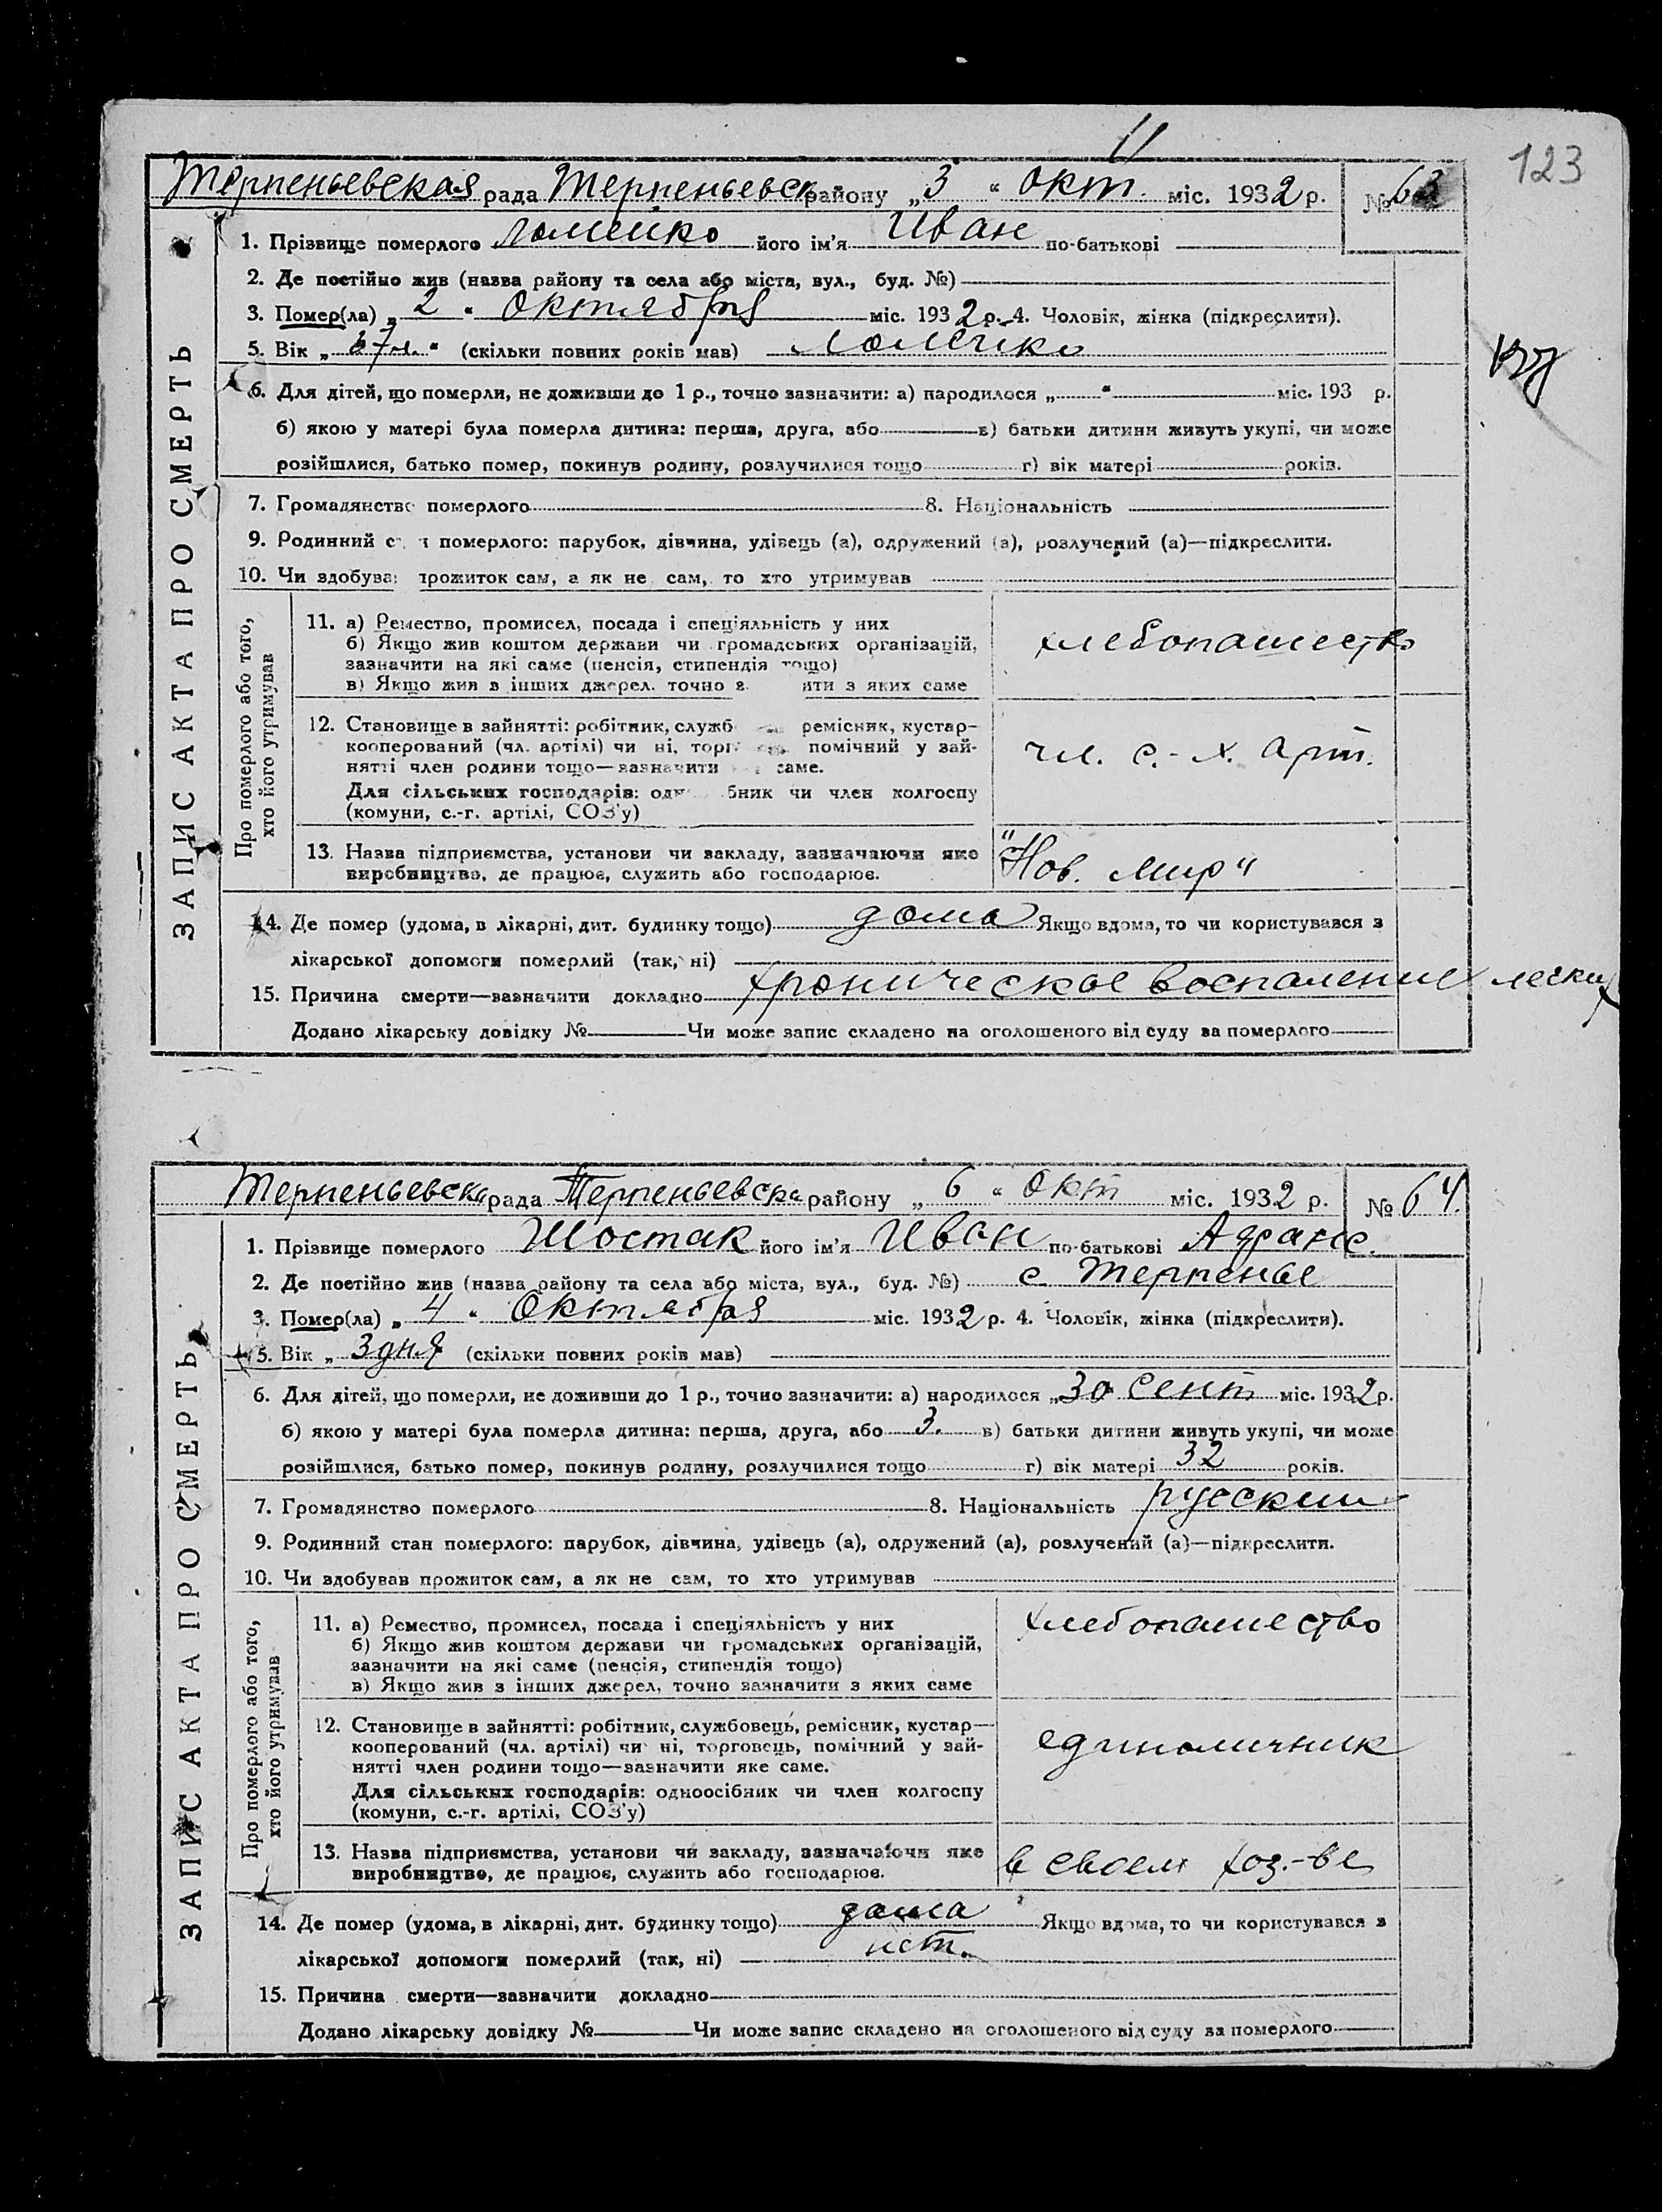 123
Терпеньевская рада Терпеньевск району „3“ окт. міс. 1932 р. № 63
1. Прізвище померлого Ломейко його ім'я Иван по-батькові
2. Де постійно жив (назва району та села або міста, вул., буд. №)
3. Помер(ла) „2“ октября міс. 1932 р. 4. Чоловік, жінка (підкреслити).
5. Вік „ “ (скільки повних років мав) Ломейко
6. Для дітей, що померли, не доживши до 1 р., точно зазначити: а) народилося „ “ міс. 193 р.
б) якою у матері була померла дитина: перша, друга, або в) батьки дитини живуть укупі, чи може
розійшлися, батько помер, покинув родину, розлучилися тощо г) вік матері років.
7. Громадянство померлого 8. Національність
9. Родинний померлого: парубок, дівчина, удівець (а), одружений (а), розлучений (а)—підкреслити.
10. Чи здобував прожиток сам, а як не сам, то хто утримував
ЗАПИС АКТА ПРО СМЕРТЬ
Про померлого або того, хто його утримував
11. а) Ремество, промисел, посада і спеціяльність у них
б) Якщо жив коштом держави чи громадських організацій,
зазначити на які саме (пенсія, стипендія тощо)
в) Якщо жив з інших джерел, точно з яких саме
хлебопашество
12. Становище в зайнятті: робітник, служб ремісник, кустар-
кооперований (чл. артілі) чи ні, торг помічний у зай-
нятті член родини тощо—зазначити саме.
Для сільських господарів: одн бник чи член колгоспу
(комуни, с.-г. артілі, СОЗ'у)
чл. с.-х. арт.
13. Назва підприємства, установи чи закладу, зазначаючи яке
виробництво, де працює, служить або господарює.
"Нов. Мир"
14. Де помер (удома, в лікарні, дит. будинку тощо) дома Якщо вдома, то чи користувався з
лікарської допомоги померлий (так, ні)
15. Причина смерти—зазначити докладно хроническое воспаление легких
Додано лікарську довідку № Чи може запис складено на оголошеного від суду за померлого
Терпеньевска рада Терпеньевска району „6“ окт міс. 1932 р. № 64.
1. Прізвище померлого Шостак його ім'я Иван по-батькові
2. Де постійно жив (назва району та села або міста, вул., буд. №) с. Терпенье
3. Помер(ла) „4“ октября міс. 1932 р. 4. Чоловік, жінка (підкреслити).
5. Вік „3 дня (скільки повних років мав)
6. Для дітей, що померли, не доживши до 1 р., точно зазначити: а) народилося „30 сент міс. 1932 р.
б) якою у матері була померла дитина: перша, друга, або 3. в) батьки дитини живуть укупі, чи може
розійшлися, батько помер, покинув родину, розлучилися тощо г) вік матері 32 років.
7. Громадянство померлого 8. Національність русский
9. Родинний стан померлого: парубок, дівчина, удівець (а), одружений (а), розлучений (а)—підкреслити.
10. Чи здобував прожиток сам, а як не сам, то хто утримував
ЗАПИС АКТА ПРО СМЕРТЬ
Про померлого або того, хто його утримував
11. а) Ремество, промисел, посада і спеціяльність у них
б) Якщо жив коштом держави чи громадських організацій,
зазначити на які саме (пенсія, стипендія тощо)
в) Якщо жив з інших джерел, точно зазначити з яких саме
хлебопашество
12. Становище в зайнятті: робітник, службовець, ремісник, кустар—
кооперований (чл. артілі) чи ні, торговець, помічний у зай-
нятті член родини тощо—зазначити яке саме.
Для сільських господарів: одноосібник чи член колгоспу
(комуни, с.-г. артілі, СОЗ'у)
единоличник
13. Назва підприємства, установи чи закладу, зазначаючи яке
виробництво, де працює, служить або господарює.
в своем хоз.-ве
14. Де помер (удома, в лікарні, дит. будинку тощо) дома Якщо вдома, то чи користувався з
лікарської допомоги померлий (так, ні) нет.
15. Причина смерти—зазначити докладно
Додано лікарську довідку № Чи може запис складено на оголошеного від суду за померлого